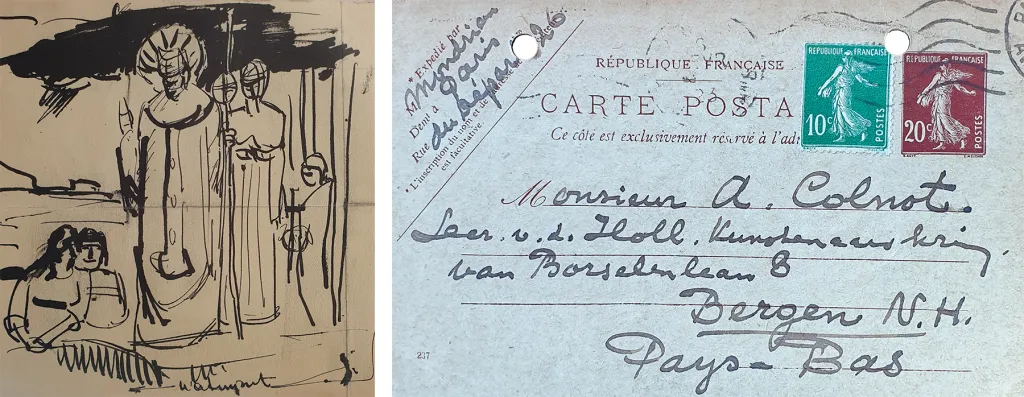 Expédié par
M Mondrian
Demt à Paris
Rue du Départ 26
* L'inscription du nom et de
est facultative.
RÉPUBLIQUE FRANÇAISE
CARTE POSTA
Ce côté est exclusivement réservé à l'adr
REPUBLIQUE FRANÇAISE
10c POSTES
REPUBLIQUE FRANÇAISE
20c POSTES
Monsieur A. Colnot.
Secr. v. d. Holl. Kunstenaarskring
van Borselenlaan 8
Bergen N.H.
Pays-Bas
237